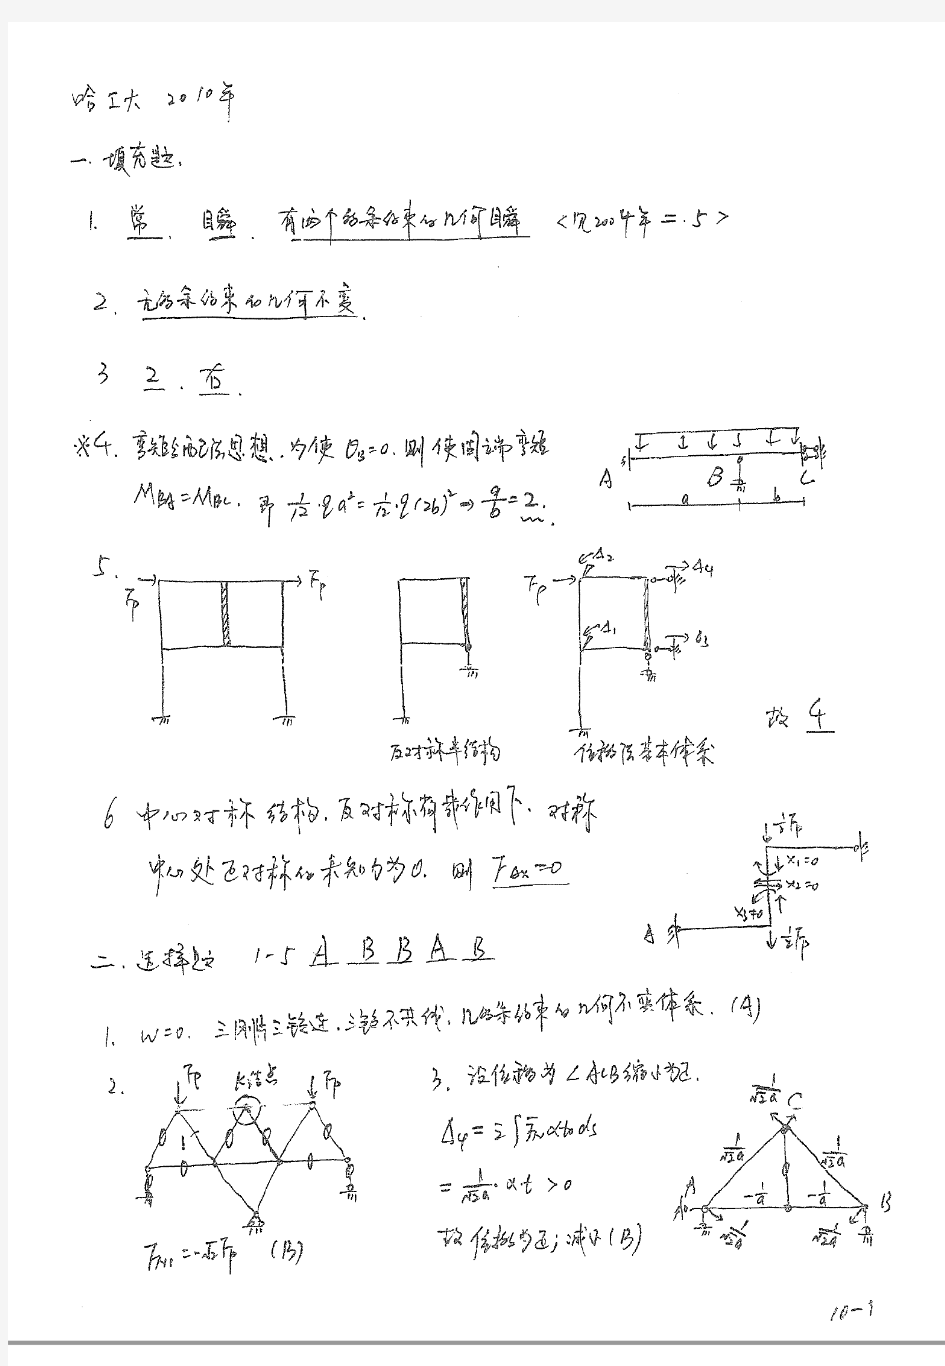 哈工大 2010年
一. 填充题.
1. 常 . 瞬 . 有两个多余约束的几何瞬 <见2004年二.5>
2. 无多余约束的几何不变.
3 2 . 右.
※4. 弯矩分配法思想. 为使 θB=0. 则使固端弯矩
MBA=MBC. 即 1/12·qa²=1/12·q(2b)² ⇒ a/b=2.
A B C
a b
5. Fp Fp Fp Δ2 Δ4
Δ1 θ3
故 4
反对称半结构 位移法基本体系
6 中心对称结构, 反对称荷载作用下, 对称
中心处正对称的未知力为0. 则 FAx=0
½Fp
X1=0
X2=0
X3≠0
A ½Fp
二. 选择题 1-5 A B B A B
1. W=0. 三刚片三铰连, 三铰不共线, 几多余约束的几何不变体系. (A)
2. Fp K结点 Fp
0 1 0 0 0 0
FN1=-√2Fp (B)
3. 设位移为∠ACB缩小为正.
Δφ=Σ∫F̄N αt0 ds
=1/√2a·αt>0
故位移为正; 减小 (B)
1/√2a C
1/√2a 0 1/√2a
A -1/a -1/a B
1/√2a 1/√2a
10-1